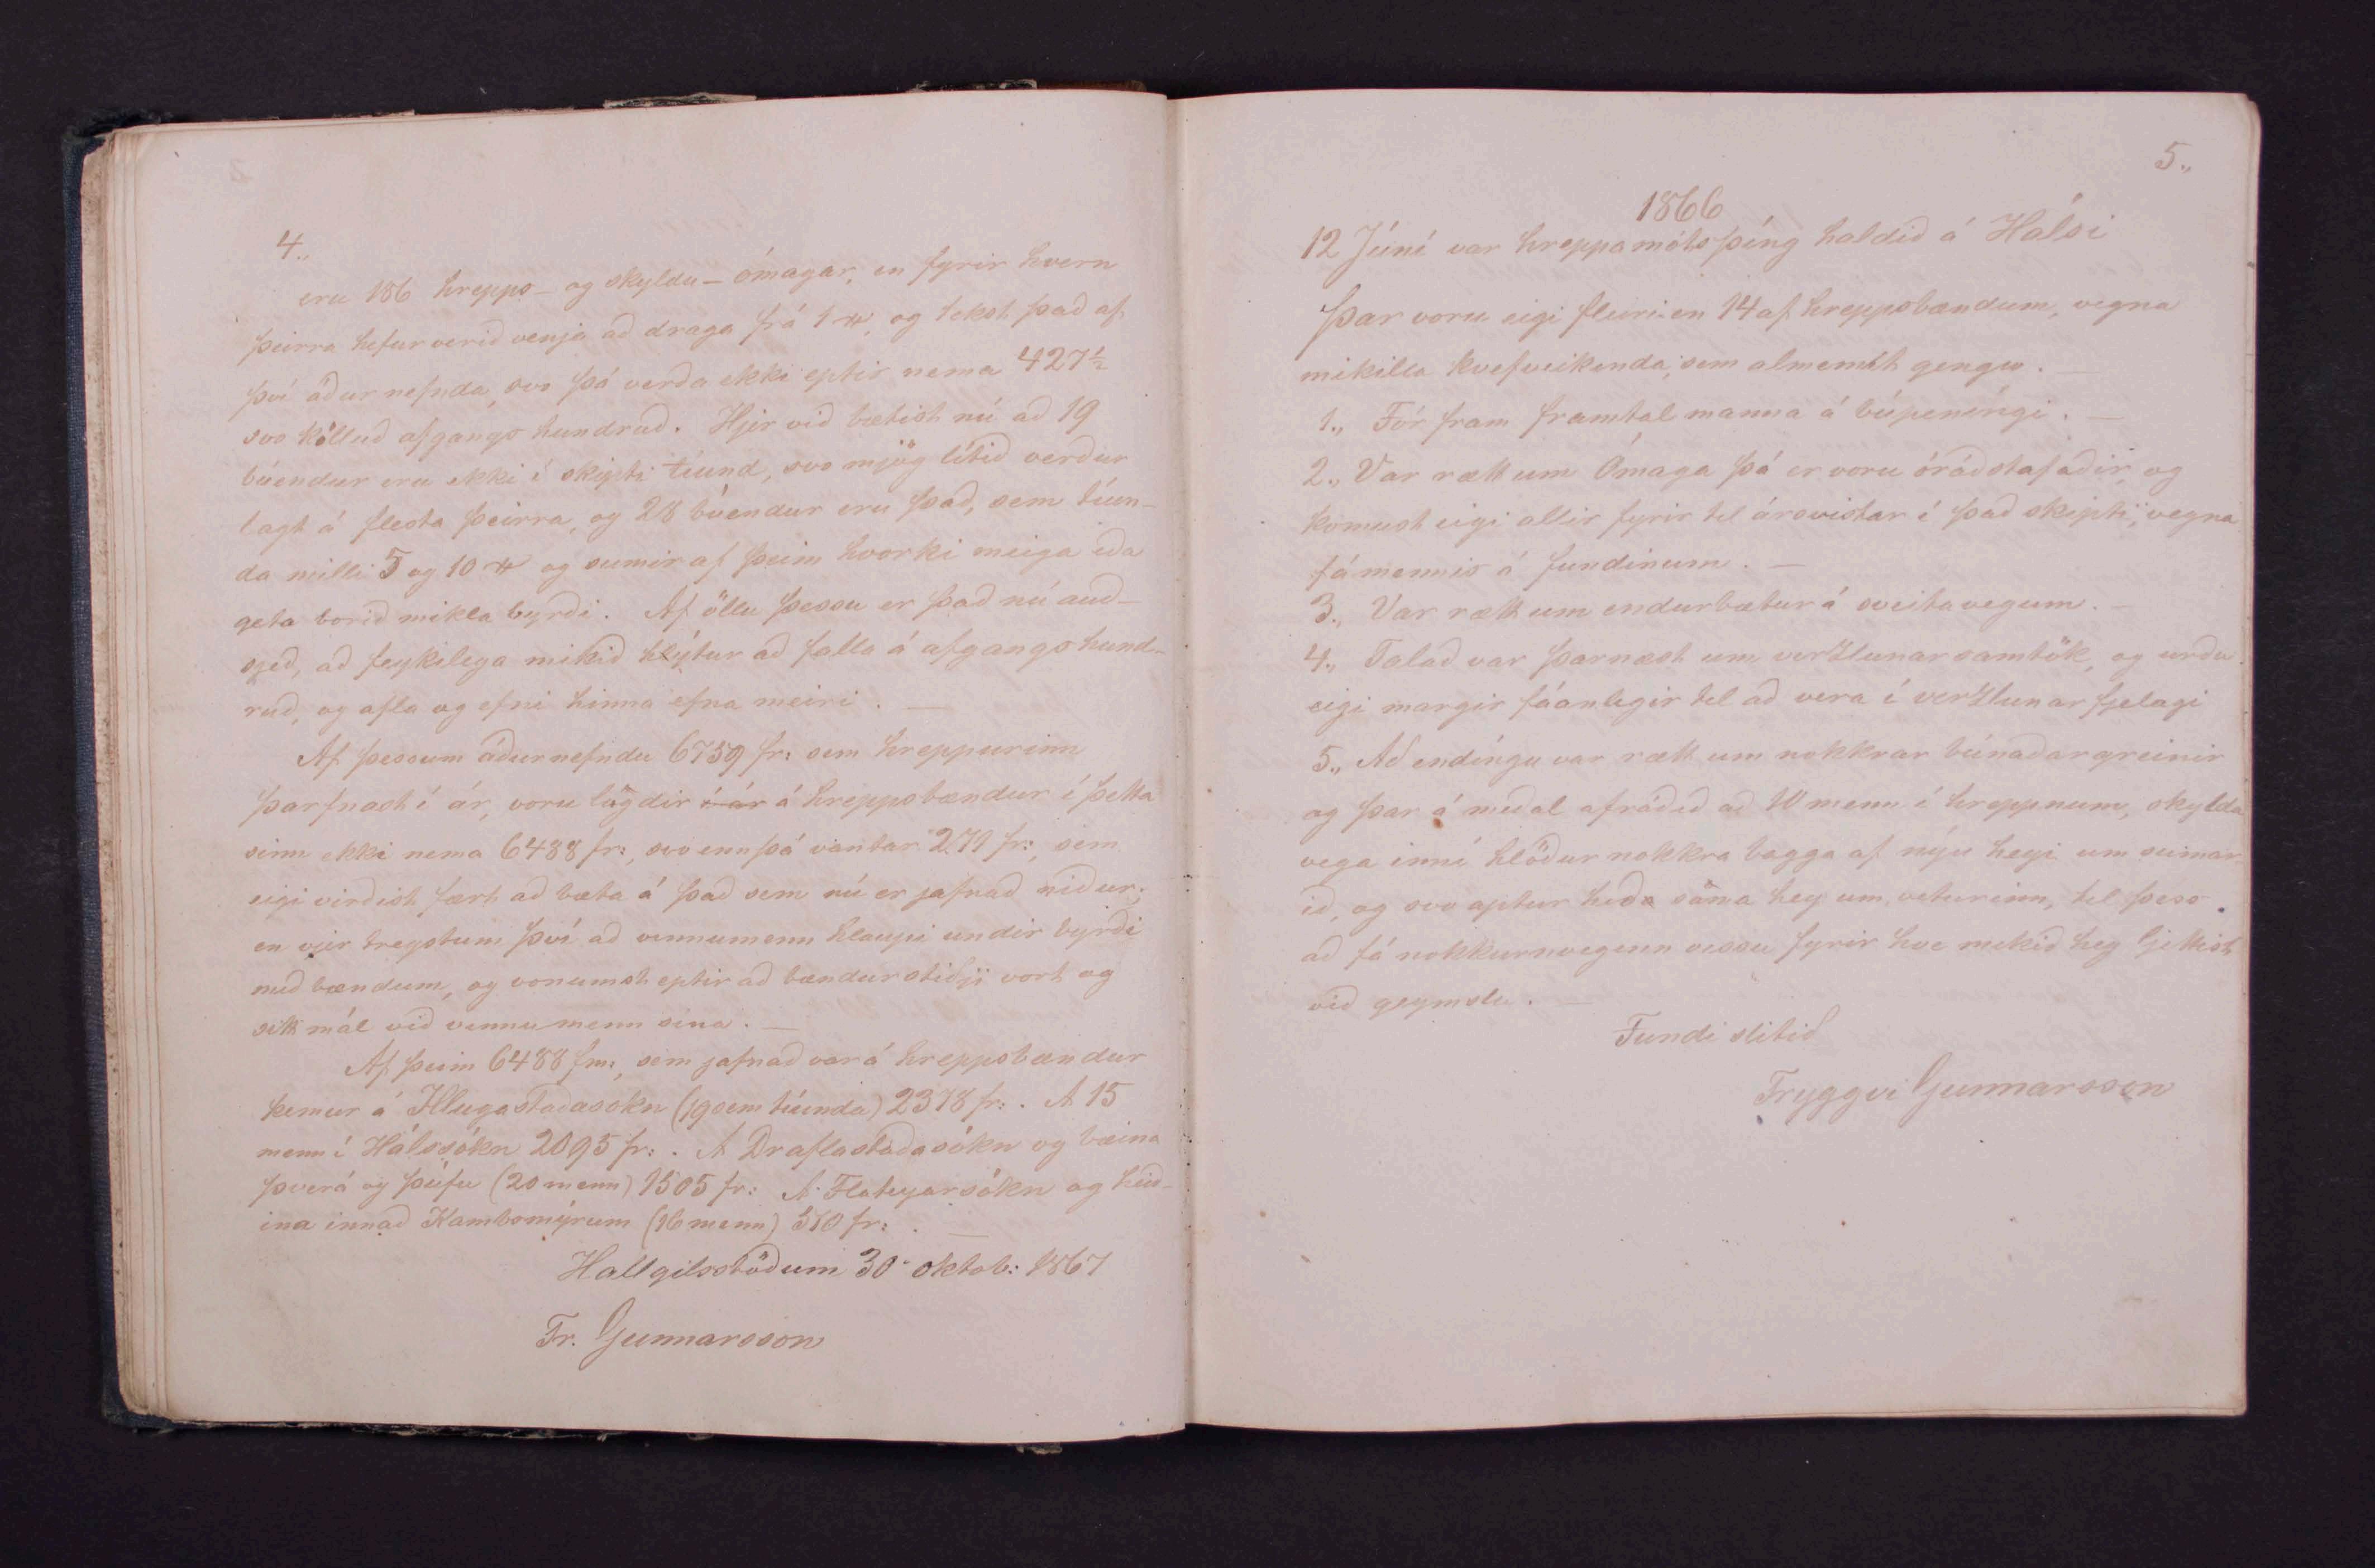 4.,
eru 186 hrepps- og skyldu-ómagar, en fyrir hvern
þeirra hefur verið venja að draga frá 1 og tekst það af
því áður nefnda, svo þá verða ekki eptir nema 427½
svo kölluð afgangs hundruð. Hjer við bætist nú að 19
búendur eru ekki í skipti tíund, svo mjög lítið verður
lagt á flesta þeirra, og 28 búendur eru það, sem tíun-
da milli 5 og 10 og sumir af þeim hvorki meiga eða
geta borið mikla byrði. Af öllu þessu er það nú auð-
sjeð, að feykilega mikið hlýtur að falla á afgangs hund-
ruð, og afla og efni hinna efna meiri. —
Af þessum áðurnefndu 6759 fr: sem hreppurinn
þarfnast í ár, voru lagdir í ár á hreppsbændur í þetta
sinn ekki nema 6488 fr:, svo ennþá vantar 271 fr:, sem
eigi virðist fært að bæta á það sem nú er jafnað niður;
en vjer treystum því að vinnumenn hlaupi undir byrði
með bændum, og vonumst eptir að bændur stiðji vort og
sitt mál við vinnumenn sína. —
Af þeim 6488 fm:, sem jafnað var á hreppsbændur
kemur á Illugastaðasókn (19 sem tíunda) 2378 fr:. Á 15
menn í Hálssókn 2095 fr:. Á Draflastaðasókn og bæina
Þverá og Þúfu (20 menn) 1505 fr: Á Flateyarsókn og heið-
ina innað Kambsmýrum (16 menn) 510 fr: . —
Hallgilsstöðum 30 oktob: 1867
Tr. Gunnarsson
5.,
1866
12 Júní var hreppamótsþíng haldið á Hálsi
Þar voru eigi fleiri en 14 af hreppsbændum, vegna
mikilla kvefveikenda, sem almennt gengu. —
1., Fór fram framtal manna á búpeníngi. —
2., Var rætt um Ómaga þá er voru óráðstafaðir, og
komust eigi allir fyrir til ársvistar í það skipti, vegna
fámennis á fundinum. —
3., Var rætt um endurbætur á sveitavegum. —
4., Talað var þarnæst um verzlunarsamtök, og urðu
eigi margir fáanlegir til að vera í verzlunarfjelagi
5., Að endíngu var rætt um nokkrar búnaðargreinir
og þar á meðal afráðið að 10 menn í hreppnum, skylda
vega inní hlöður nokkra bagga af nýu heyi um sumar-
ið, og svo aptur heða sama hey um veturinn, til þess
að fá nokkurnveginn vissu fyrir hve mikið hey ljettist
við geymslu. —
Fundi slitið
Tryggvi Gunnarsson